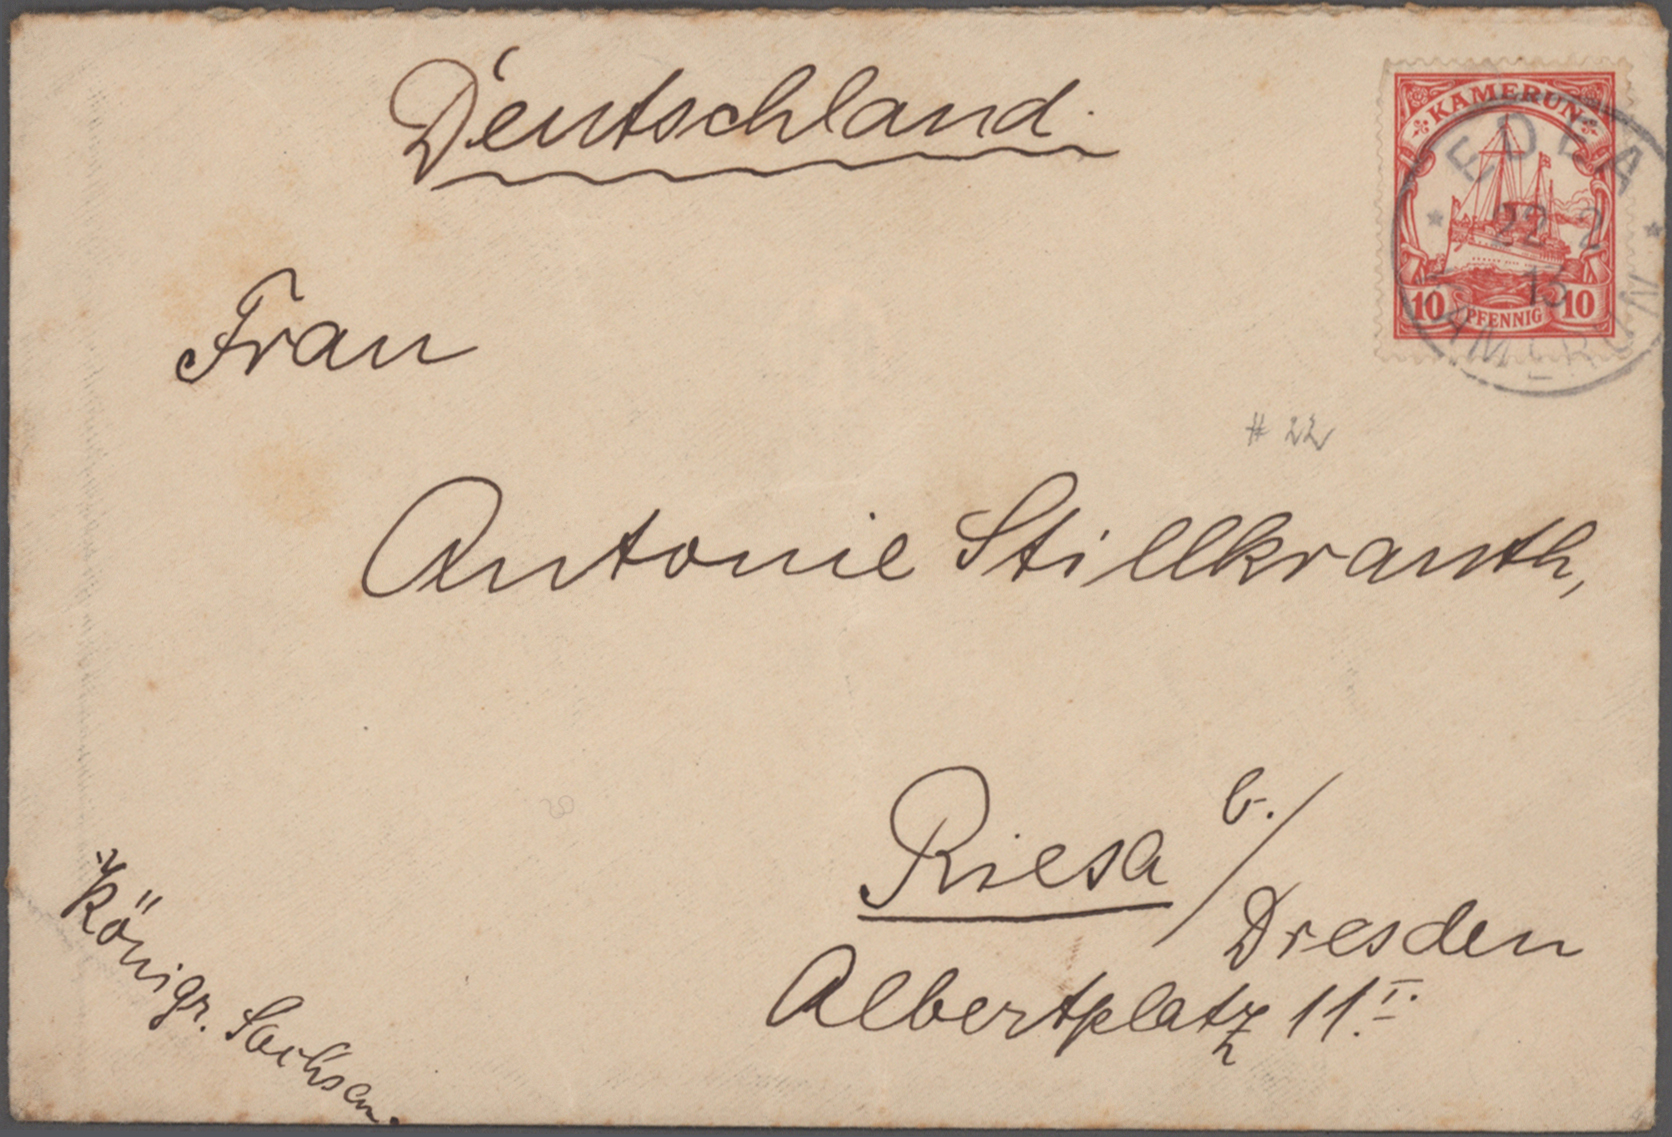 Deutschland.
KAMERUN
10 PFENNIG 10
EDEA
* 22 2 *
13
KAMERUN
Frau
# 22
Antonie Stillkrauth,
Riesa b./
Dresden
Albertplatz 11 I.
Königr. Sachsen.